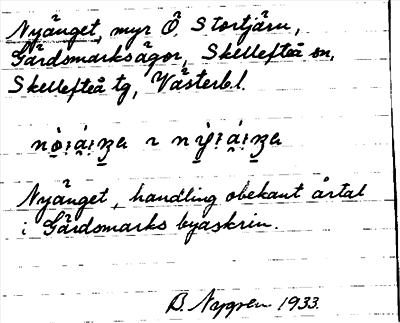 Nyänget, myr Ö. Stortjärn,
Gårdsmarksägor, Skellefteå sn,
Skellefteå tg, Västerb.l.
Nyänget, handling obekant årtal
i Gårdsmarks byaskrin.
B. Nygren 1933.